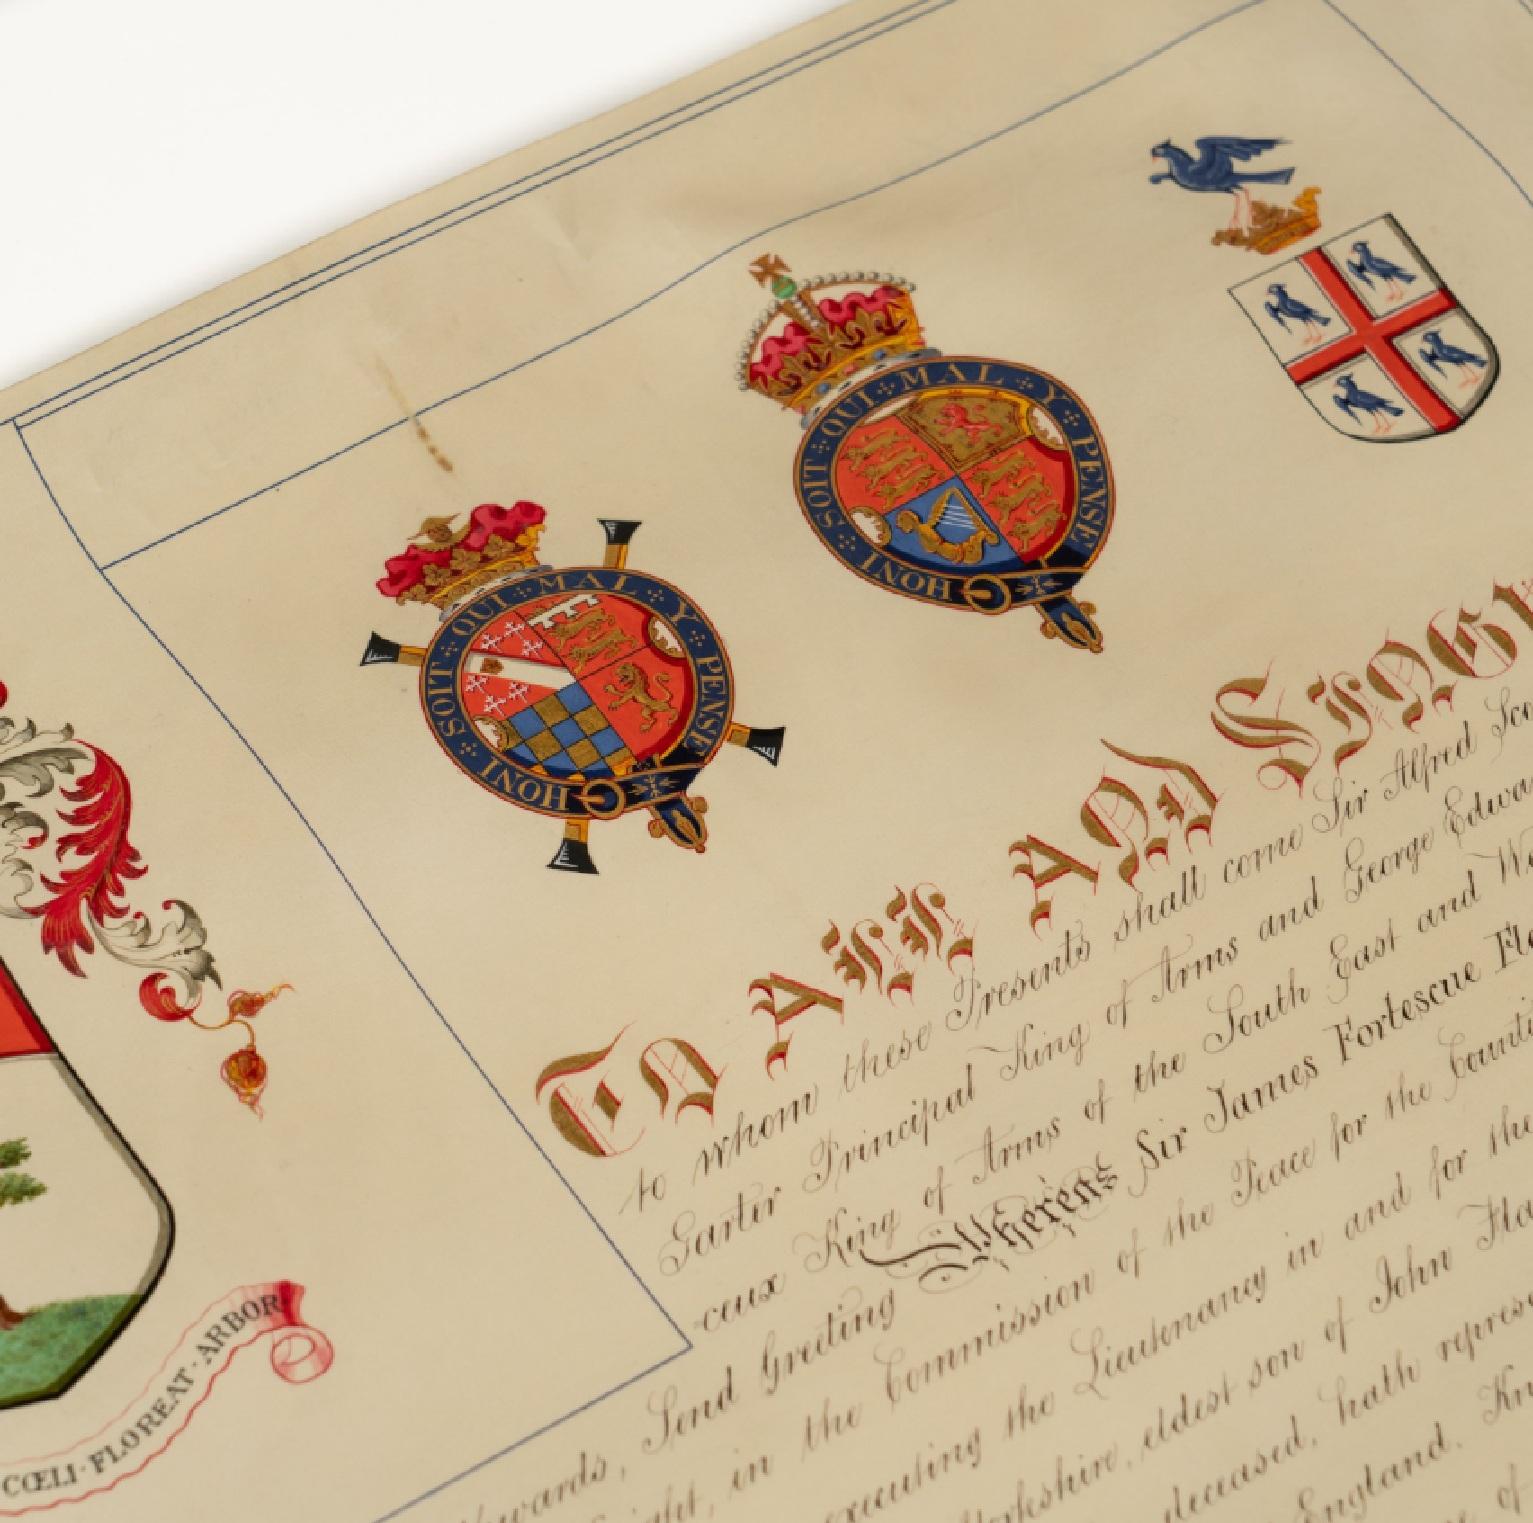 HONI · SOIT · QUI · MAL · Y · PENSE
HONI · SOIT · QUI · MAL · Y · PENSE
TO ALL AND SINGU
to whom these Presents shall come Sir Alfred Sco
Garter Principal King of Arms and George Edwa
-ceux King of Arms of the South East and We
-wards, Send Greeting Whereas Sir James Fortescue Fla
ight, in the Commission of the Peace for the Counti
executing the Lieutenancy in and for the
Yorkshire, eldest son of John Fla
deceased, hath represe
England. Kn
of
CŒLI · FLOREAT · ARBOR